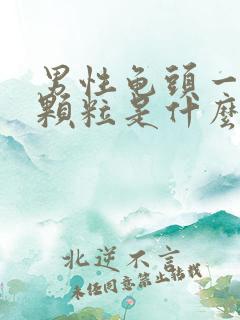 男性龜頭一
顆粒是什麼
北逆不言
未任同意禁止轉載